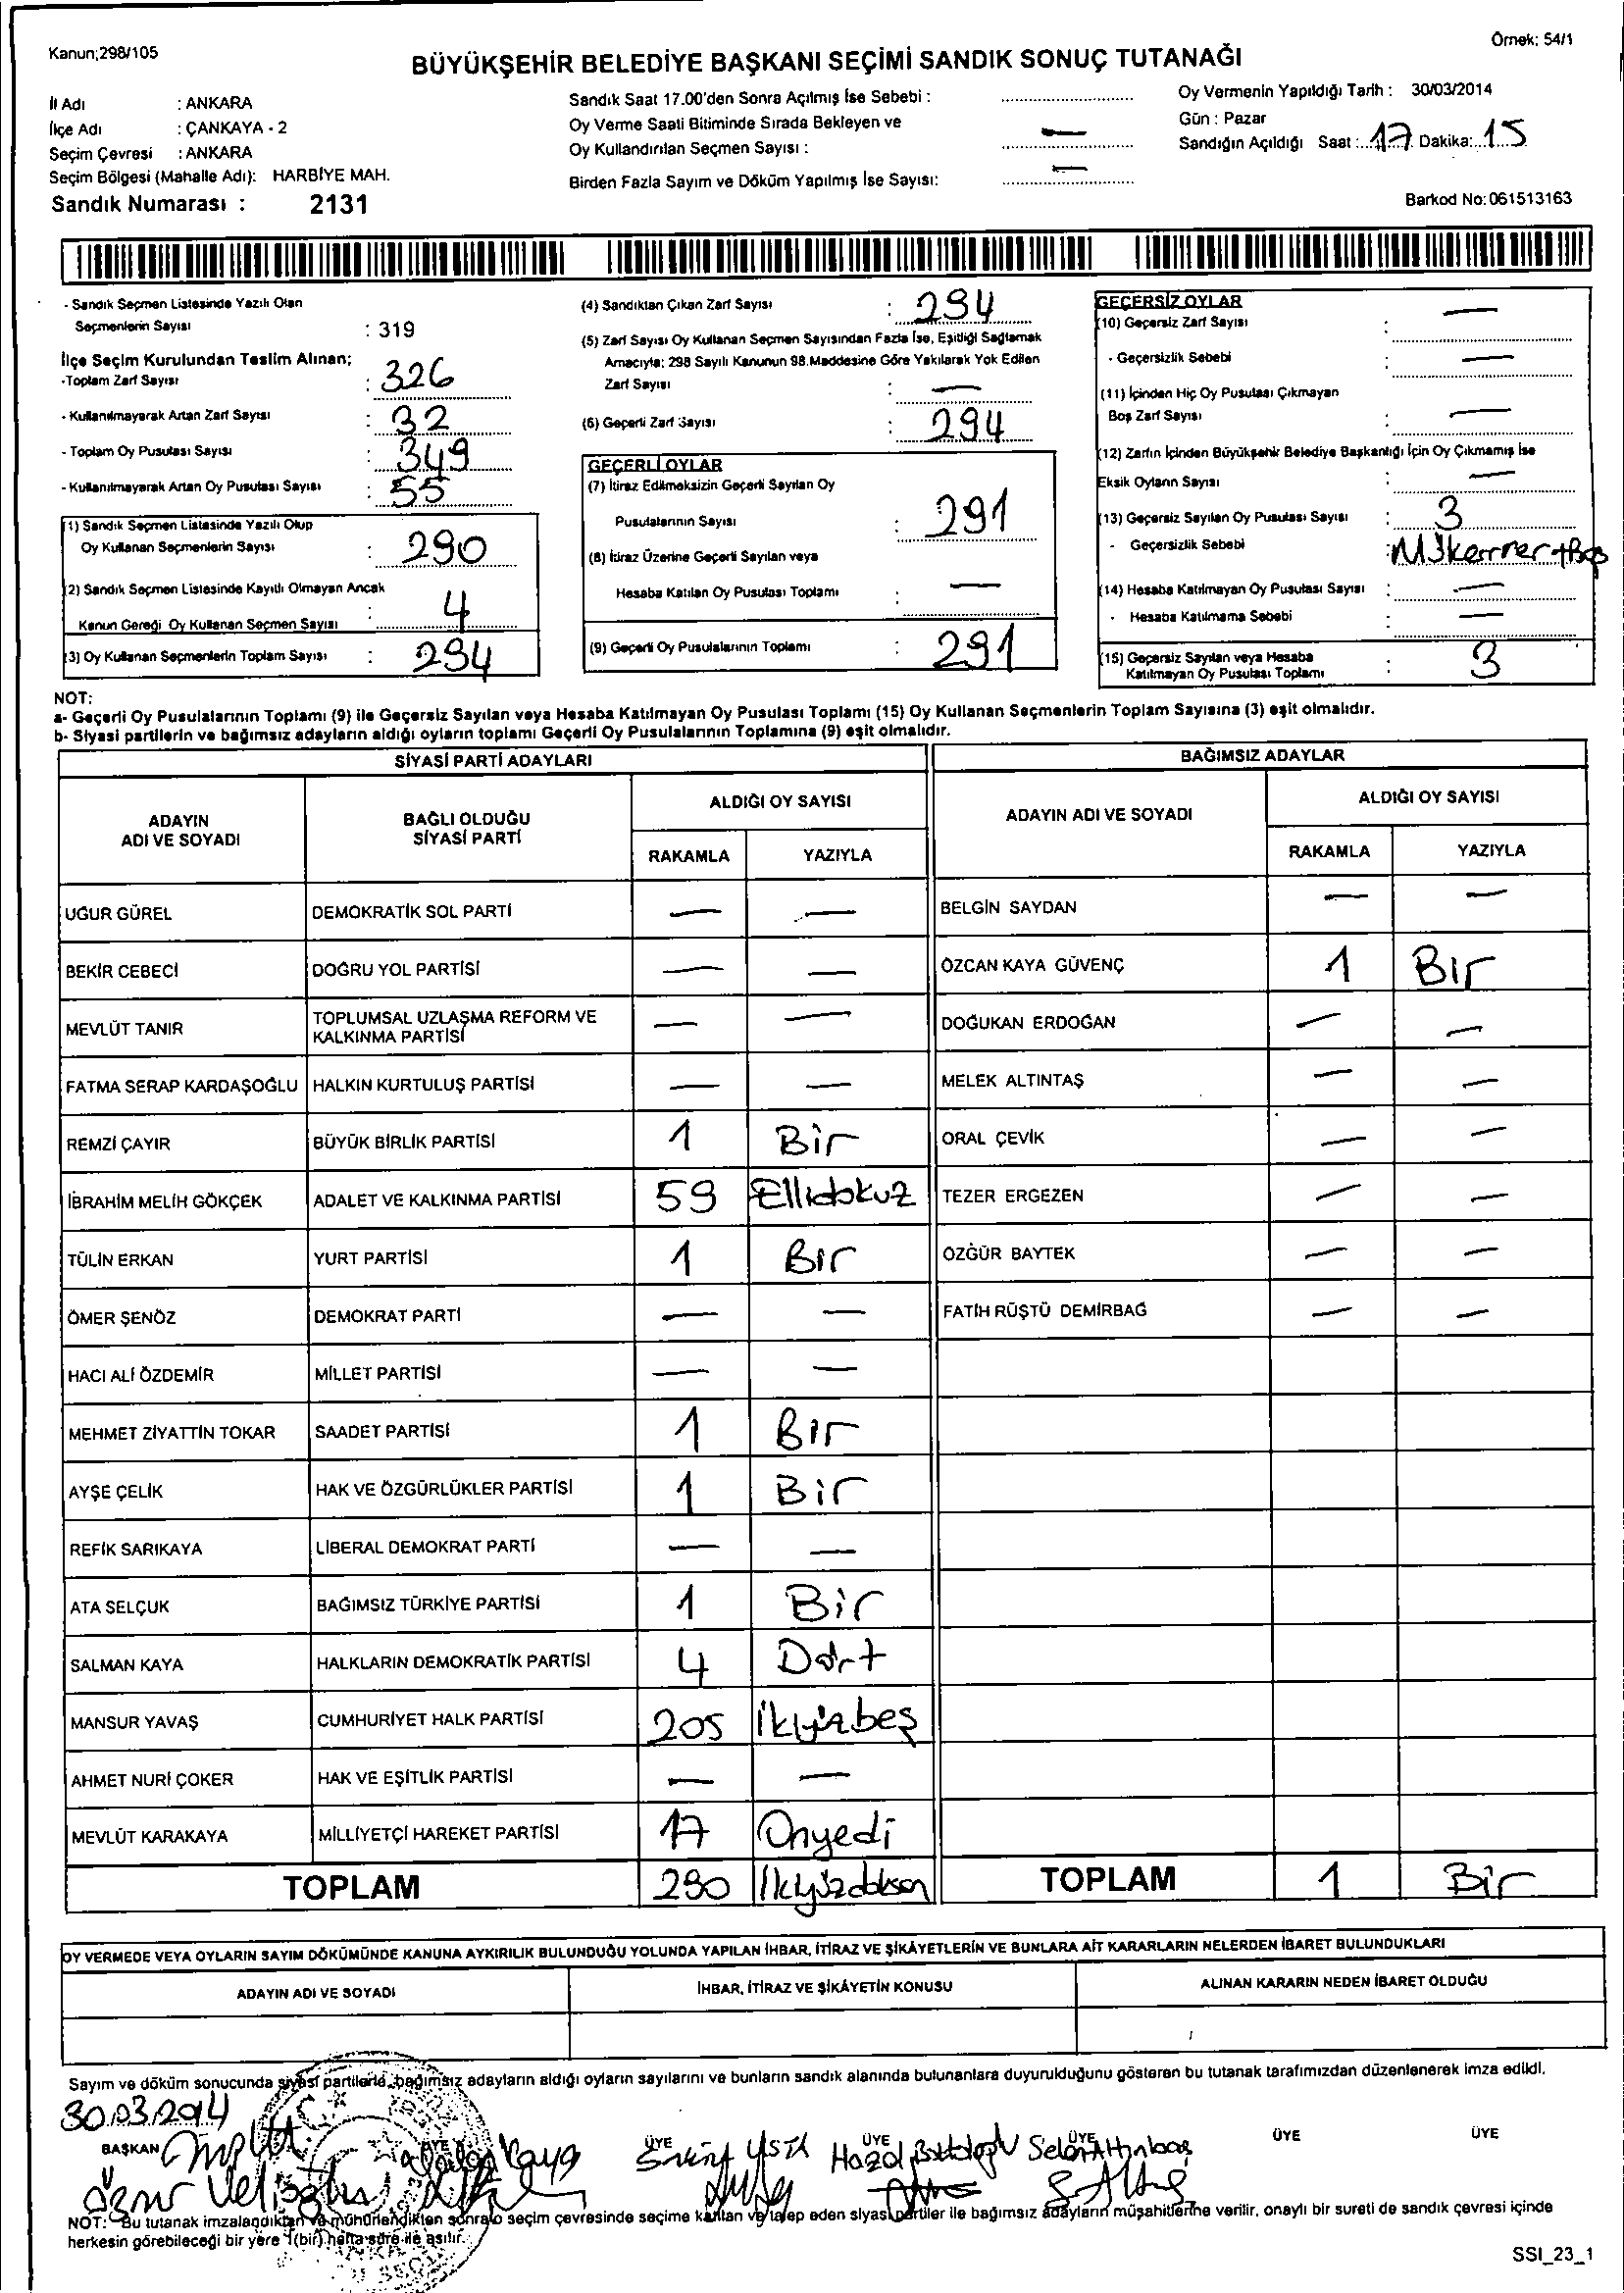 Kanun;298/105
Örnek; 54/1
BÜYÜKŞEHİR BELEDİYE BAŞKANI SEÇİMİ SANDIK SONUÇ TUTANAĞI
İl Adı : ANKARA
İlçe Adı : ÇANKAYA - 2
Seçim Çevresi : ANKARA
Seçim Bölgesi (Mahalle Adı): HARBİYE MAH.
Sandık Numarası : 2131
Sandık Saat 17.00'den Sonra Açılmış İse Sebebi :
Oy Verme Saati Bitiminde Sırada Bekleyen ve
Oy Kullandırılan Seçmen Sayısı : —
Birden Fazla Sayım ve Döküm Yapılmış İse Sayısı: —
Oy Vermenin Yapıldığı Tarih : 30/03/2014
Gün : Pazar
Sandığın Açıldığı Saat : 17 Dakika: 15
Barkod No: 061513163
- Sandık Seçmen Listesinde Yazılı Olan
Seçmenlerin Sayısı : 319
İlçe Seçim Kurulundan Teslim Alınan;
-Toplam Zarf Sayısı : 326
- Kullanılmayarak Artan Zarf Sayısı : 32
- Toplam Oy Pusulası Sayısı : 349
- Kullanılmayarak Artan Oy Pusulası Sayısı : 55
(1) Sandık Seçmen Listesinde Yazılı Olup
Oy Kullanan Seçmenlerin Sayısı : 290
(2) Sandık Seçmen Listesinde Kayıtlı Olmayan Ancak
Kanun Gereği Oy Kullanan Seçmen Sayısı : 4
(3) Oy Kullanan Seçmenlerin Toplam Sayısı : 294
(4) Sandıktan Çıkan Zarf Sayısı : 294
(5) Zarf Sayısı Oy Kullanan Seçmen Sayısından Fazla İse, Eşitliği Sağlamak
Amacıyla; 298 Sayılı Kanunun 98.Maddesine Göre Yakılarak Yok Edilen
Zarf Sayısı : —
(6) Geçerli Zarf Sayısı : 294
GEÇERLİ OYLAR
(7) İtiraz Edilmeksizin Geçerli Sayılan Oy
Pusulalarının Sayısı : 291
(8) İtiraz Üzerine Geçerli Sayılan veya
Hesaba Katılan Oy Pusulası Toplamı : —
(9) Geçerli Oy Pusulalarının Toplamı : 291
GEÇERSİZ OYLAR
(10) Geçersiz Zarf Sayısı : —
- Geçersizlik Sebebi : —
(11) İçinden Hiç Oy Pusulası Çıkmayan
Boş Zarf Sayısı : —
(12) Zarfın İçinden Büyükşehir Belediye Başkanlığı İçin Oy Çıkmamış İse
Eksik Oyların Sayısı : —
(13) Geçersiz Sayılan Oy Pusulası Sayısı : 3
- Geçersizlik Sebebi : Mükerrer+Boş
(14) Hesaba Katılmayan Oy Pusulası Sayısı : —
- Hesaba Katılmama Sebebi : —
(15) Geçersiz Sayılan veya Hesaba
Katılmayan Oy Pusulası Toplamı : 3
NOT:
a- Geçerli Oy Pusulalarının Toplamı (9) ile Geçersiz Sayılan veya Hesaba Katılmayan Oy Pusulası Toplamı (15) Oy Kullanan Seçmenlerin Toplam Sayısına (3) eşit olmalıdır.
b- Siyasi partilerin ve bağımsız adayların aldığı oyların toplamı Geçerli Oy Pusulalarının Toplamına (9) eşit olmalıdır.
SİYASİ PARTİ ADAYLARI
ADAYIN
ADI VE SOYADI
BAĞLI OLDUĞU
SİYASİ PARTİ
ALDIĞI OY SAYISI
RAKAMLA YAZIYLA
UĞUR GÜREL DEMOKRATİK SOL PARTİ — —
BEKİR CEBECİ DOĞRU YOL PARTİSİ — —
MEVLÜT TANIR TOPLUMSAL UZLAŞMA REFORM VE
KALKINMA PARTİSİ — —
FATMA SERAP KARDAŞOĞLU HALKIN KURTULUŞ PARTİSİ — —
REMZİ ÇAYIR BÜYÜK BİRLİK PARTİSİ 1 Bir
İBRAHİM MELİH GÖKÇEK ADALET VE KALKINMA PARTİSİ 59 Ellidokuz
TÜLİN ERKAN YURT PARTİSİ 1 Bir
ÖMER ŞENÖZ DEMOKRAT PARTİ — —
HACI ALİ ÖZDEMİR MİLLET PARTİSİ — —
MEHMET ZİYATTİN TOKAR SAADET PARTİSİ 1 Bir
AYŞE ÇELİK HAK VE ÖZGÜRLÜKLER PARTİSİ 1 Bir
REFİK SARIKAYA LİBERAL DEMOKRAT PARTİ — —
ATA SELÇUK BAĞIMSIZ TÜRKİYE PARTİSİ 1 Bir
SALMAN KAYA HALKLARIN DEMOKRATİK PARTİSİ 4 Dört
MANSUR YAVAŞ CUMHURİYET HALK PARTİSİ 205 İkiyüzbeş
AHMET NURİ ÇOKER HAK VE EŞİTLİK PARTİSİ — —
MEVLÜT KARAKAYA MİLLİYETÇİ HAREKET PARTİSİ 17 Onyedi
TOPLAM 290 İkiyüzdoksan
BAĞIMSIZ ADAYLAR
ADAYIN ADI VE SOYADI
ALDIĞI OY SAYISI
RAKAMLA YAZIYLA
BELGİN SAYDAN — —
ÖZCAN KAYA GÜVENÇ 1 Bir
DOĞUKAN ERDOĞAN — —
MELEK ALTINTAŞ — —
ORAL ÇEVİK — —
TEZER ERGEZEN — —
ÖZGÜR BAYTEK — —
FATİH RÜŞTÜ DEMİRBAĞ — —
TOPLAM 1 Bir
OY VERMEDE VEYA OYLARIN SAYIM DÖKÜMÜNDE KANUNA AYKIRILIK BULUNDUĞU YOLUNDA YAPILAN İHBAR, İTİRAZ VE ŞİKÂYETLERİN VE BUNLARA AİT KARARLARIN NELERDEN İBARET BULUNDUKLARI
ADAYIN ADI VE SOYADI
İHBAR, İTİRAZ VE ŞİKÂYETİN KONUSU
ALINAN KARARIN NEDEN İBARET OLDUĞU
Sayım ve döküm sonucunda siyasi partilerle, bağımsız adayların aldığı oyların sayılarını ve bunların sandık alanında bulunanlara duyurulduğunu gösteren bu tutanak tarafımızdan düzenlenerek imza edildi.
30.03.2014
BAŞKAN ÜYE ÜYE ÜYE ÜYE ÜYE ÜYE
Kaya Hazal Selen Altınbaş
NOT: Bu tutanak imzalandıktan ve mühürlendikten sonra o seçim çevresinde seçime katılan ve talep eden siyasi partiler ile bağımsız adayların müşahitlerine verilir, onaylı bir sureti de sandık çevresi içinde
herkesin görebileceği bir yere 1(bir) hafta süre ile asılır.
SSI_23_1